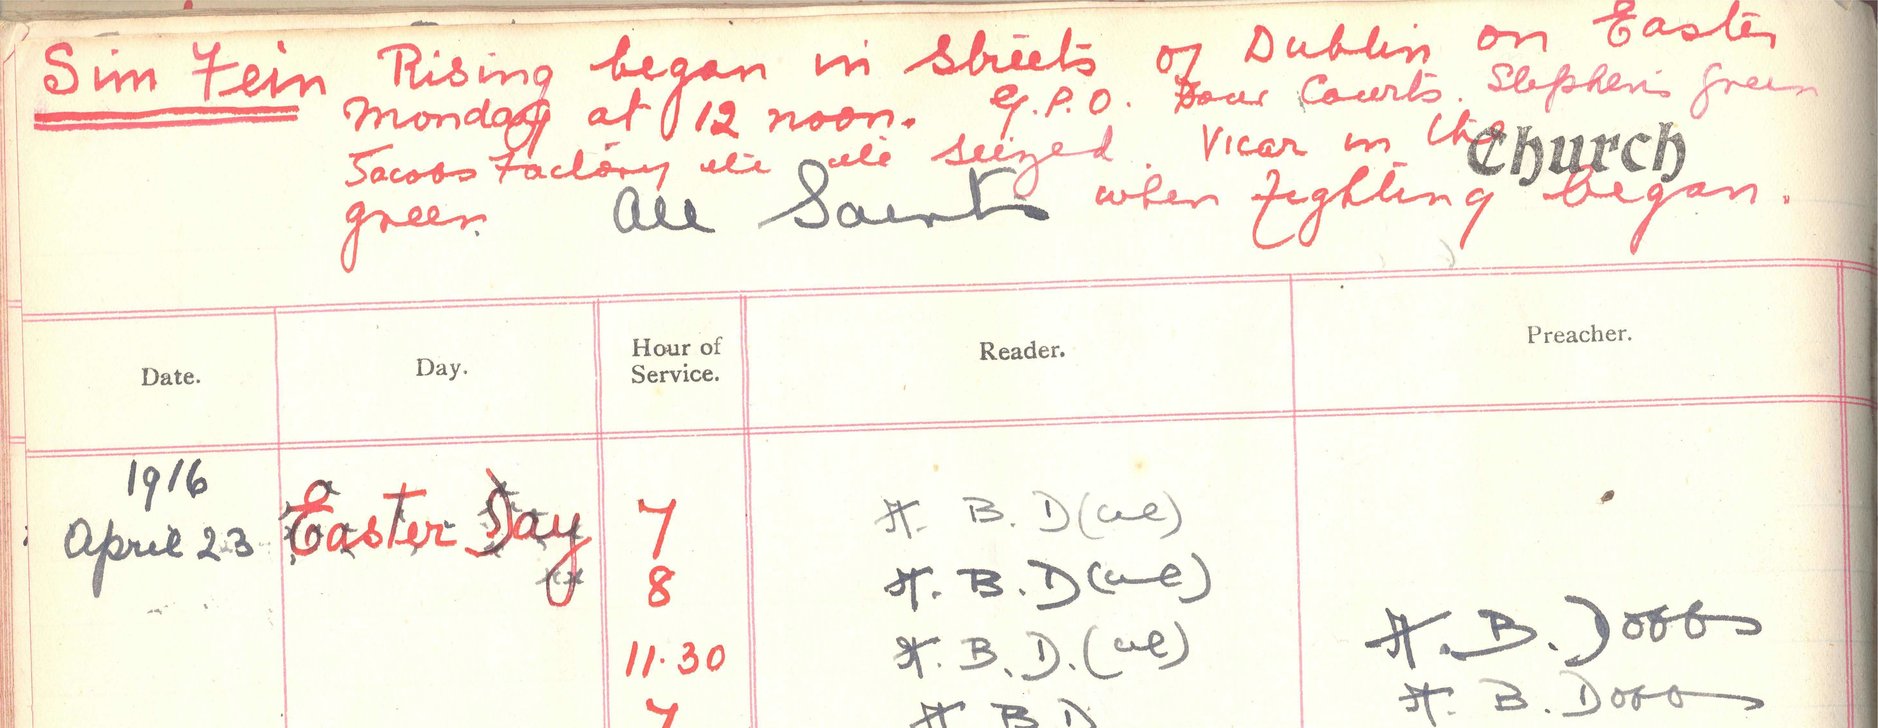 Sinn Fein Rising began in streets of Dublin on Easter
Monday at 12 noon. G.P.O. Four Courts. Stephens green
Jacobs Factory etc etc seized. Vicar in the
green. when fighting began.
All Saints Church
Date. Day. Hour of Service. Reader. Preacher.
1916
April 23 Easter Day 7 H. B. D (all)
8 H. B. D (all)
11.30 H. B. D. (all) H. B. Dobbs
7 H. B. D H. B. Dobbs